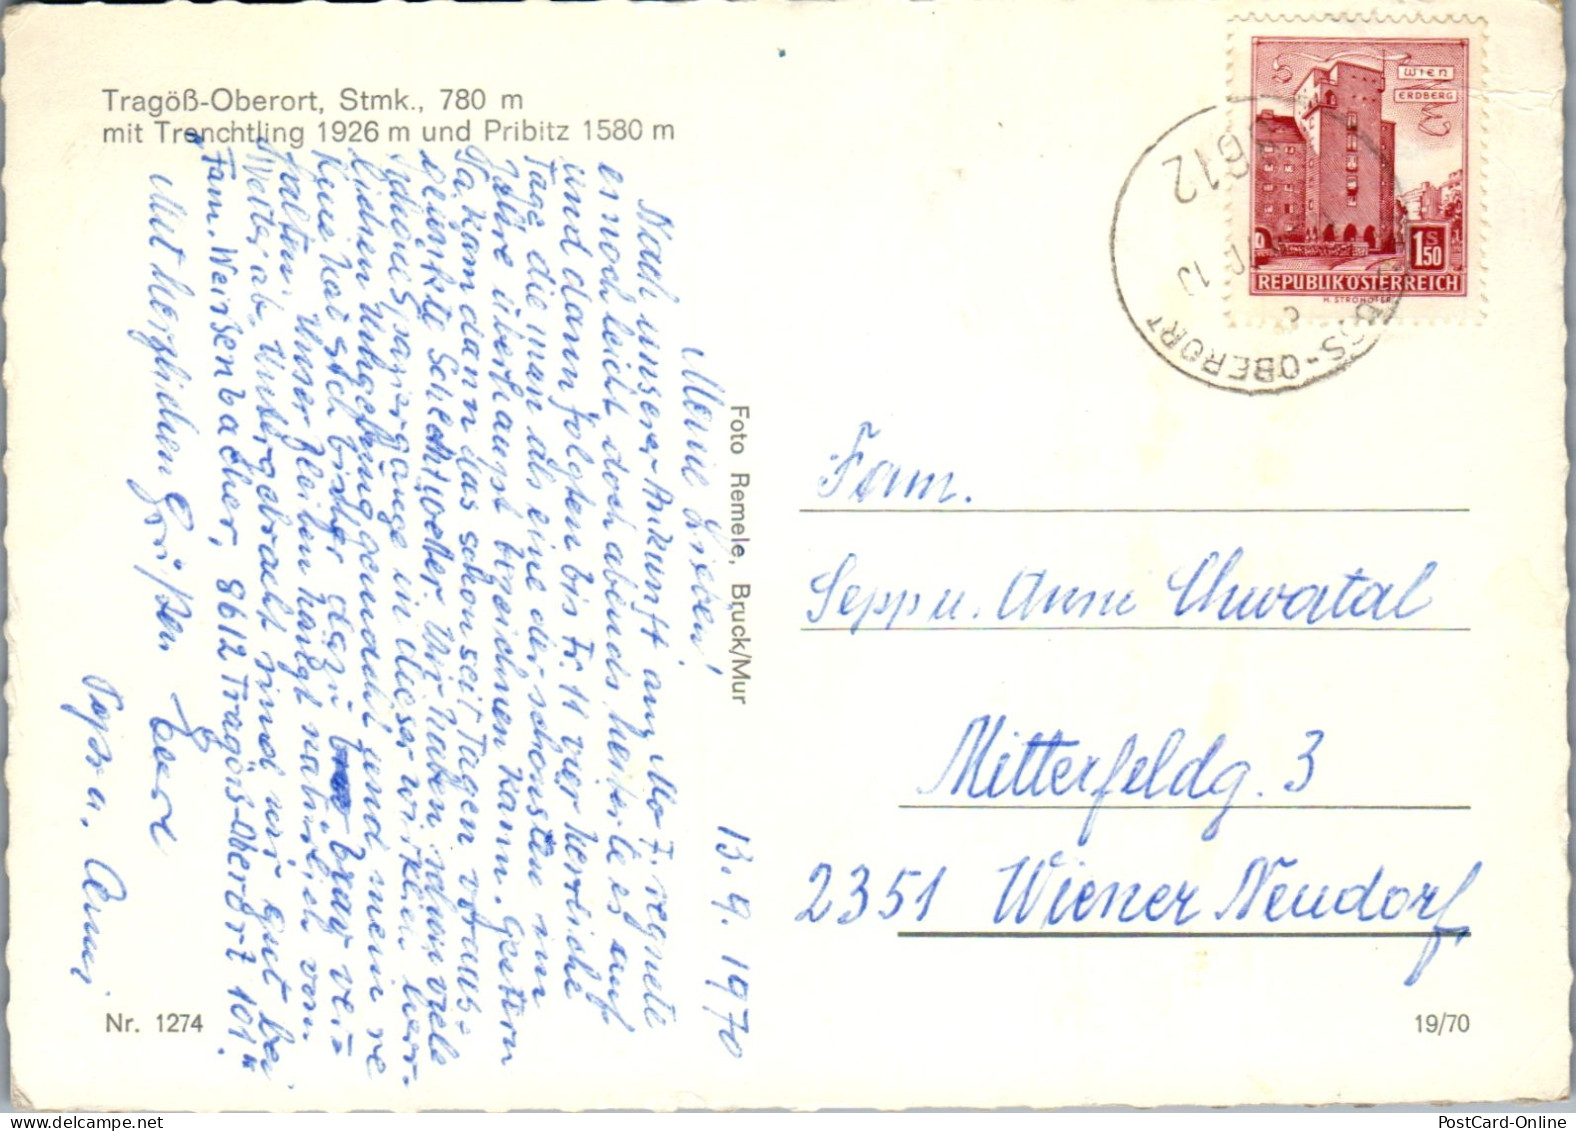 Tragöß-Oberort, Stmk., 780 m
mit Trenchtling 1926 m und Pribitz 1580 m
13. 9. 1970
Meine Lieben!
Nach unserer Ankunft am Mo 7. regnete
es noch leicht doch abends heiterte es auf
und dann folgten bis Fr. 11 vier herrliche
Tage die man als eine der schönsten im
Jahre überhaupt bezeichnen kann. Gestern
Sa. kam dann das schon seit Tagen voraus=
gesagte Schlechtwetter. Wir haben schon viele
schöne Spaziergänge in dieser wirklich herr-
lichen Umgebung gemacht und meine
Kur hat sich bisher dazu brav ver=
halten. Unser Bleiben hängt natürlich vom
Wetter ab. Untergebracht sind wir gut bei
"Fam. Weissenbacher, 8612 Tragöss-Oberort 101"
Mit herzlichen Grüßen Eure
Pepi u. Anni
Foto Remele, Bruck/Mur
Nr. 1274
WIEN
ERDBERG
S
1 50
REPUBLIK ÖSTERREICH
H. STROHOFER
8612
SS-OBERORT
Fam.
Sepp u. Anne Chwatal
Mitterfeldg. 3
2351 Wiener Neudorf
19/70
PostCard-Online